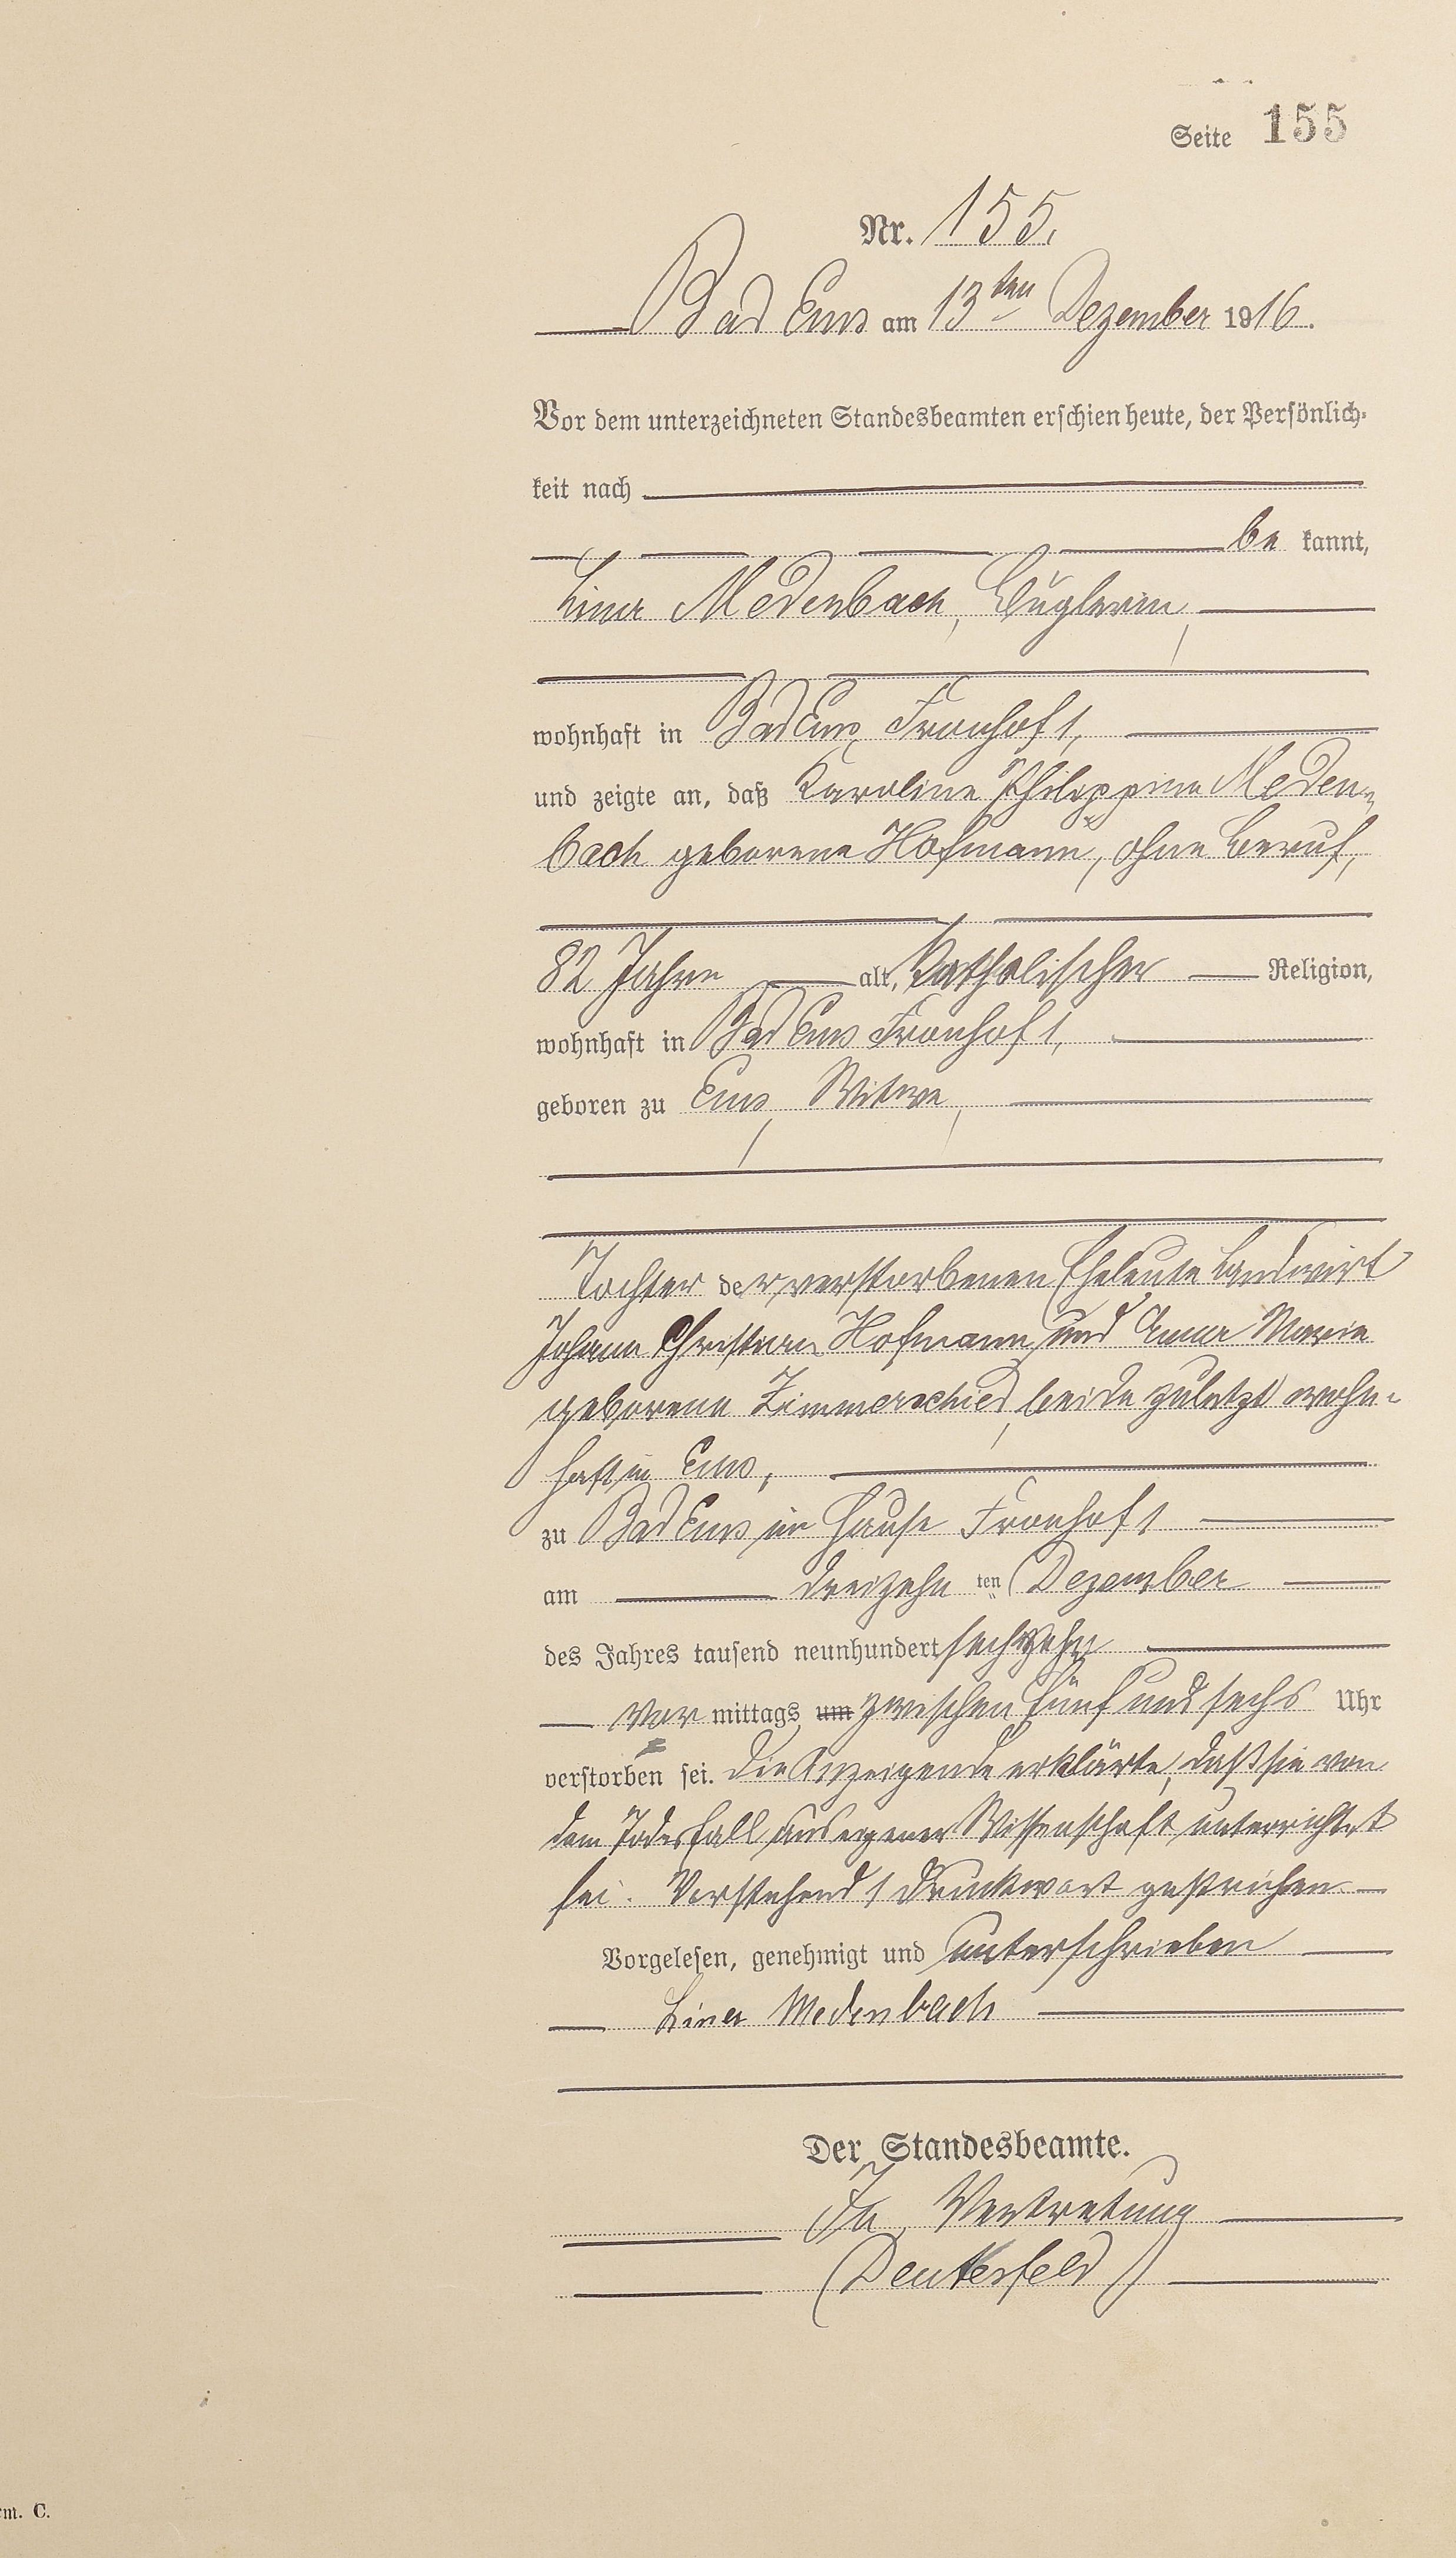 Seite 155
Nr. 155.
Bad Ems am 13ten Dezember 1916.
Vor dem unterzeichneten Standesbeamten erschien heute, der Persönlich-
keit nach
be kannt,
Lina Medenbach, Büglerin,
wohnhaft in Bad Ems, Fronhof 1,
und zeigte an, daß Karoline Philippine Meden-
bach geborene Hofmann, ohne Beruf,
82 Jahre alt, katholischer Religion,
wohnhaft in Bad Ems Fronhof 1,
geboren zu Ems, Witwe,
Tochter der verstorbenen Eheleute Landwirt
Johann Christian Hofmann und Anna Maria
geborene Zimmerschied, beide zuletzt wohn-
haft in Ems,
zu Bad Ems im Hause Fronhof 1
am dreizehn ten Dezember
des Jahres tausend neunhundert sechzehn
vor mittags um zwischen fünf und sechs Uhr
verstorben sei. Die Anzeigende erklärte, daß sie von
dem Todesfall aus eigener Wissenschaft unterrichtet
sei. Vorstehend 1 Druckwort gestrichen.
Vorgelesen, genehmigt und unterschrieben
Lina Medenbach
Der Standesbeamte.
In Vertretung
rm. C.